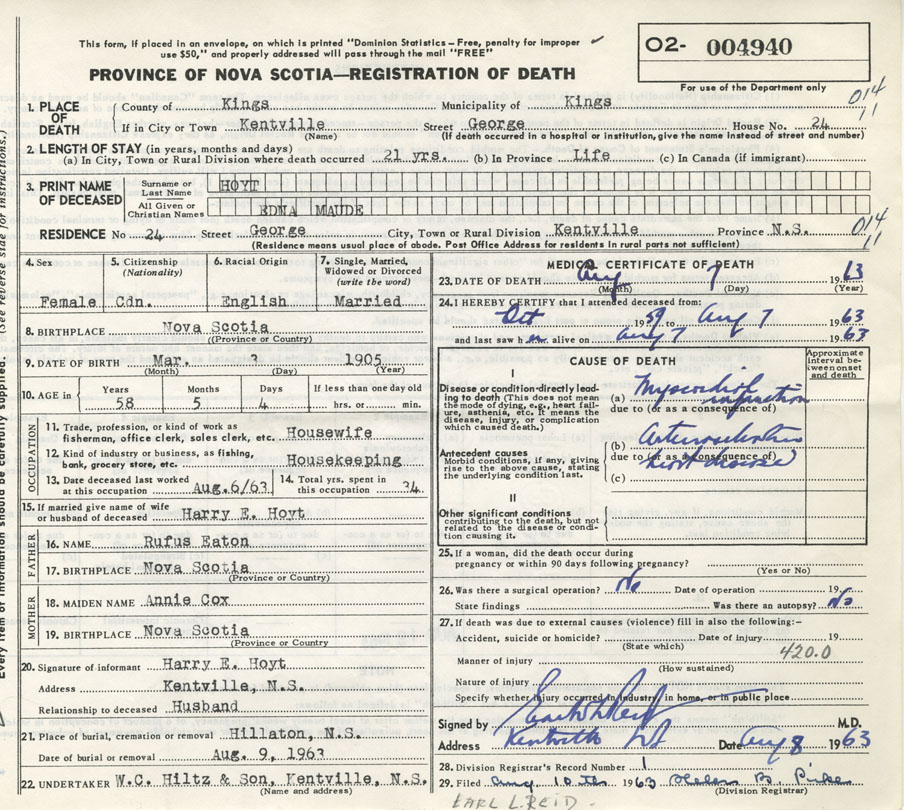 This form, if placed in an envelope, on which is printed "Dominion Statistics - Free, penalty for improper
use $50," and properly addressed will pass through the mail "FREE"
O2- 004940
PROVINCE OF NOVA SCOTIA—REGISTRATION OF DEATH
For use of the Department only
014
11
1. PLACE OF DEATH County of Kings Municipality of Kings
If in City or Town Kentville Street George House No. 24
(Name) (If death occurred in a hospital or institution, give the name instead of street and number)
2. LENGTH OF STAY (in years, months and days)
(a) In City, Town or Rural Division where death occurred 21 yrs. (b) In Province Life (c) In Canada (if immigrant)
3. PRINT NAME OF DECEASED Surname or Last Name HOYT
All Given or Christian Names EDNA MAUDE
RESIDENCE No 24 Street George City, Town or Rural Division Kentville Province N.S.
014
11
(Residence means usual place of abode. Post Office Address for residents in rural parts not sufficient)
4. Sex Female
5. Citizenship (Nationality) Cdn.
6. Racial Origin English
7. Single, Married, Widowed or Divorced (write the word) Married
8. BIRTHPLACE Nova Scotia
(Province or Country)
9. DATE OF BIRTH Mar. 3 1905
(Month) (Day) (Year)
10. AGE in Years 58 Months 5 Days 4 If less than one day old hrs. or min.
OCCUPATION
11. Trade, profession, or kind of work as
fisherman, office clerk, sales clerk, etc. Housewife
12. Kind of industry or business, as fishing,
bank, grocery store, etc. Housekeeping
13. Date deceased last worked
at this occupation Aug.6/63
14. Total yrs. spent in
this occupation 34
15. If married give name of wife
or husband of deceased Harry E. Hoyt
FATHER
16. NAME Rufus Eaton
17. BIRTHPLACE Nova Scotia
(Province or Country)
MOTHER
18. MAIDEN NAME Annie Cox
19. BIRTHPLACE Nova Scotia
(Province or Country
20. Signature of informant Harry E. Hoyt
Address Kentville, N.S.
Relationship to deceased Husband
21. Place of burial, cremation or removal Hillaton, N.S.
Date of burial or removal Aug. 9, 1963
22. UNDERTAKER W.C. Hiltz & Son, Kentville, N.S.
(Name and address)
MEDICAL CERTIFICATE OF DEATH
23. DATE OF DEATH Aug 7 1963
(Month) (Day) (Year)
24. I HEREBY CERTIFY that I attended deceased from:
Oct 1959 to Aug 7 1963
and last saw her alive on Aug 7 1963
CAUSE OF DEATH
Approximate interval between onset and death
I
Disease or condition directly leading to death (This does not mean
the mode of dying, e.g., heart failure, asthenia, etc. It means the
disease, injury, or complication
which caused death.)
(a) Myocardial infarction
due to (or as a consequence of)
Antecedent causes
Morbid conditions, if any, giving
rise to the above cause, stating
the underlying condition last.
(b) Arteriosclerotic
due to (or as a consequence of)
heart disease
(c)
II
Other significant conditions
contributing to the death, but not
related to the disease or condition causing it.
25. If a woman, did the death occur during
pregnancy or within 90 days following pregnancy?
(Yes or No)
26. Was there a surgical operation? No Date of operation 19
State findings Was there an autopsy? No
27. If death was due to external causes (violence) fill in also the following:-
Accident, suicide or homicide? Date of injury 19
(State which)
420.0
Manner of injury
(How sustained)
Nature of injury
Specify whether injury occurred in industry, in home, or in public place
Signed by M.D.
Address Kentville NS Date Aug 8 1963
28. Division Registrar's Record Number 1
29. Filed Aug 10th 1963 Helen B.
(Division Registrar)
EARL L. REID.
Every item of information should be carefully supplied. (See reverse side for instructions.)